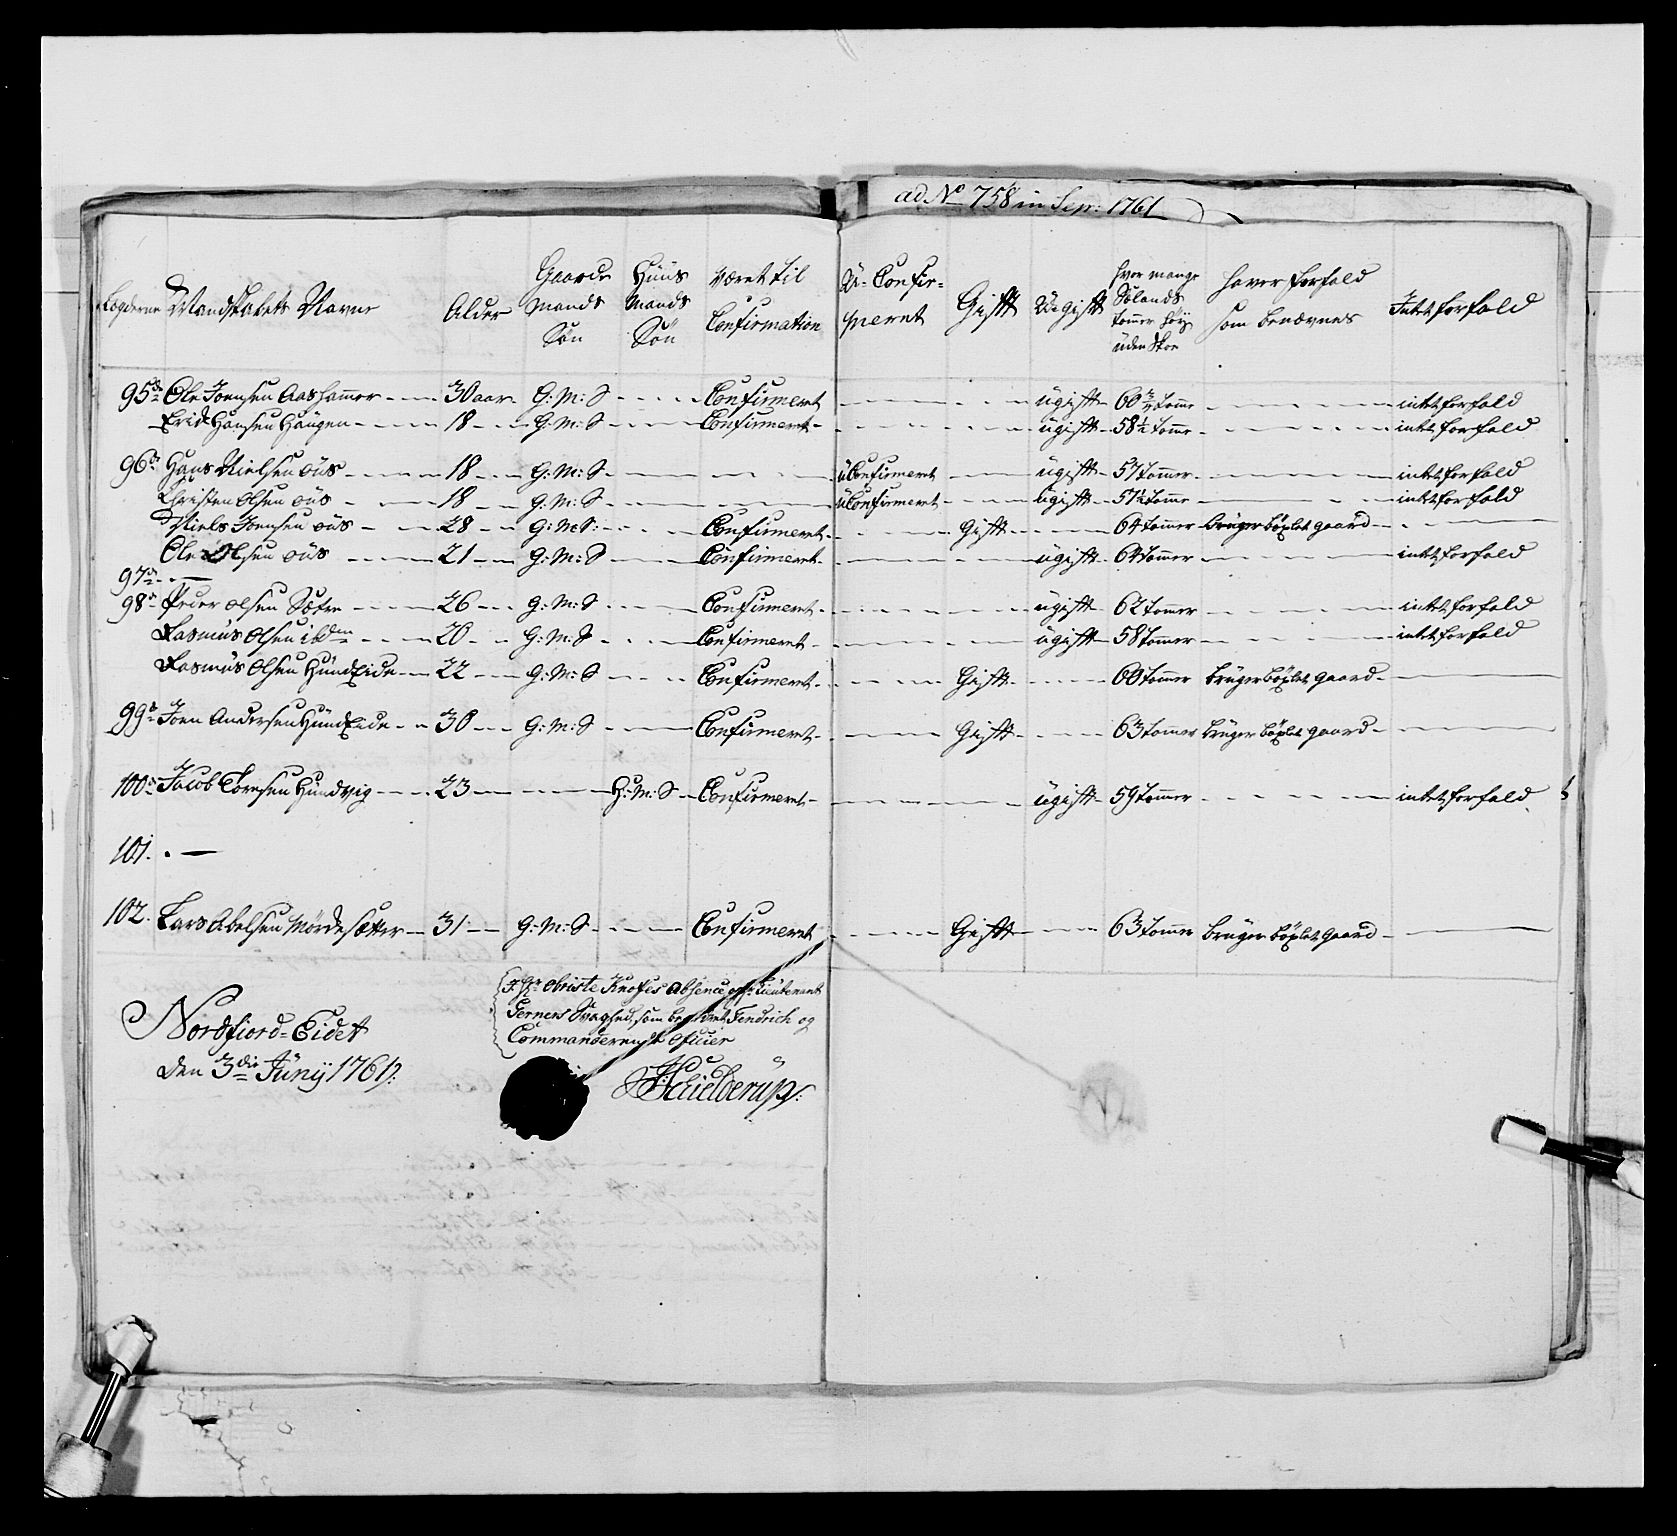 ad No 758 in Sepr: 1761
Lægderne Mandskabets Navne Alder Gaarde Mands Søn Huus Mands Søn Været til Confirmation U-Confirmeret Gift Ugift hvor mange Sølands tommer høy uden Skoe haver forfald som benævnes Intet forfald
95de Ole Joensen Aashammer 30 aar G:M:S Confirmeret ugift 60 3/4 tomme intet forfald
Erich Hansen Haugen 18 G:M:S Confirmeret ugift 58 1/2 tomme intet forfald
96de Hans Nielsen øus 18 G:M:S uConfirmeret ugift 57 tommer intet forfald
Christen Olsen øus 18 G:M:S uConfirmeret ugift 57 1/2 tomme intet forfald
Niels Joensen øus 28 G:M:S: Confirmeret Gift 64 tommer bruger böxlet gaard
Ole Olsen øus 21 G:M:S Confirmeret ugift 64 tommer intet forfald
97de
98de Peder olsen Sætre 26 G:M:S Confirmeret ugift 62 tommer intet forfald
Rasmus Olsen ibdm 20 G:M:S Confirmeret ugift 58 tommer intet forfald
Rasmus Olsen HundEide 22 G:M:S Confirmeret Gift 60 tommer bruger böxlet gaard
99de Joen Andersen HundEide 30 G:M:S Confirmeret Gift 63 tommer bruger böxlet gaard
100de Jacob Torresen Hundvig 23 H:M:S Confirmeret ugift 59 tommer intet forfald
101.
102. Lars Abelsen Mördesætter 31 G:M:S Confirmeret Gift 63 tomme bruger böxlet gaard
Nordfiord-Eidet
den 3die Junij 1761:
I Hr Christe Knofes Absence og Hr Lieutenant
Gerners Svaghed, som Fendrich og
Commanderende Oficier
Schielderup: